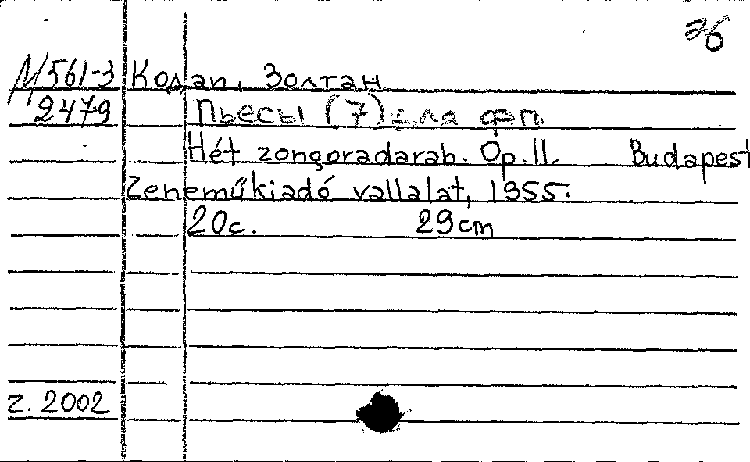 эб
М561-3 Кодаи, Золтан
2479 Пьесы (7) для ф-п.
Hét zongoradarab. Op.11. Budapest
Zeneműkiadó vallalat, 1955.
20с. 29cm
г. 2002